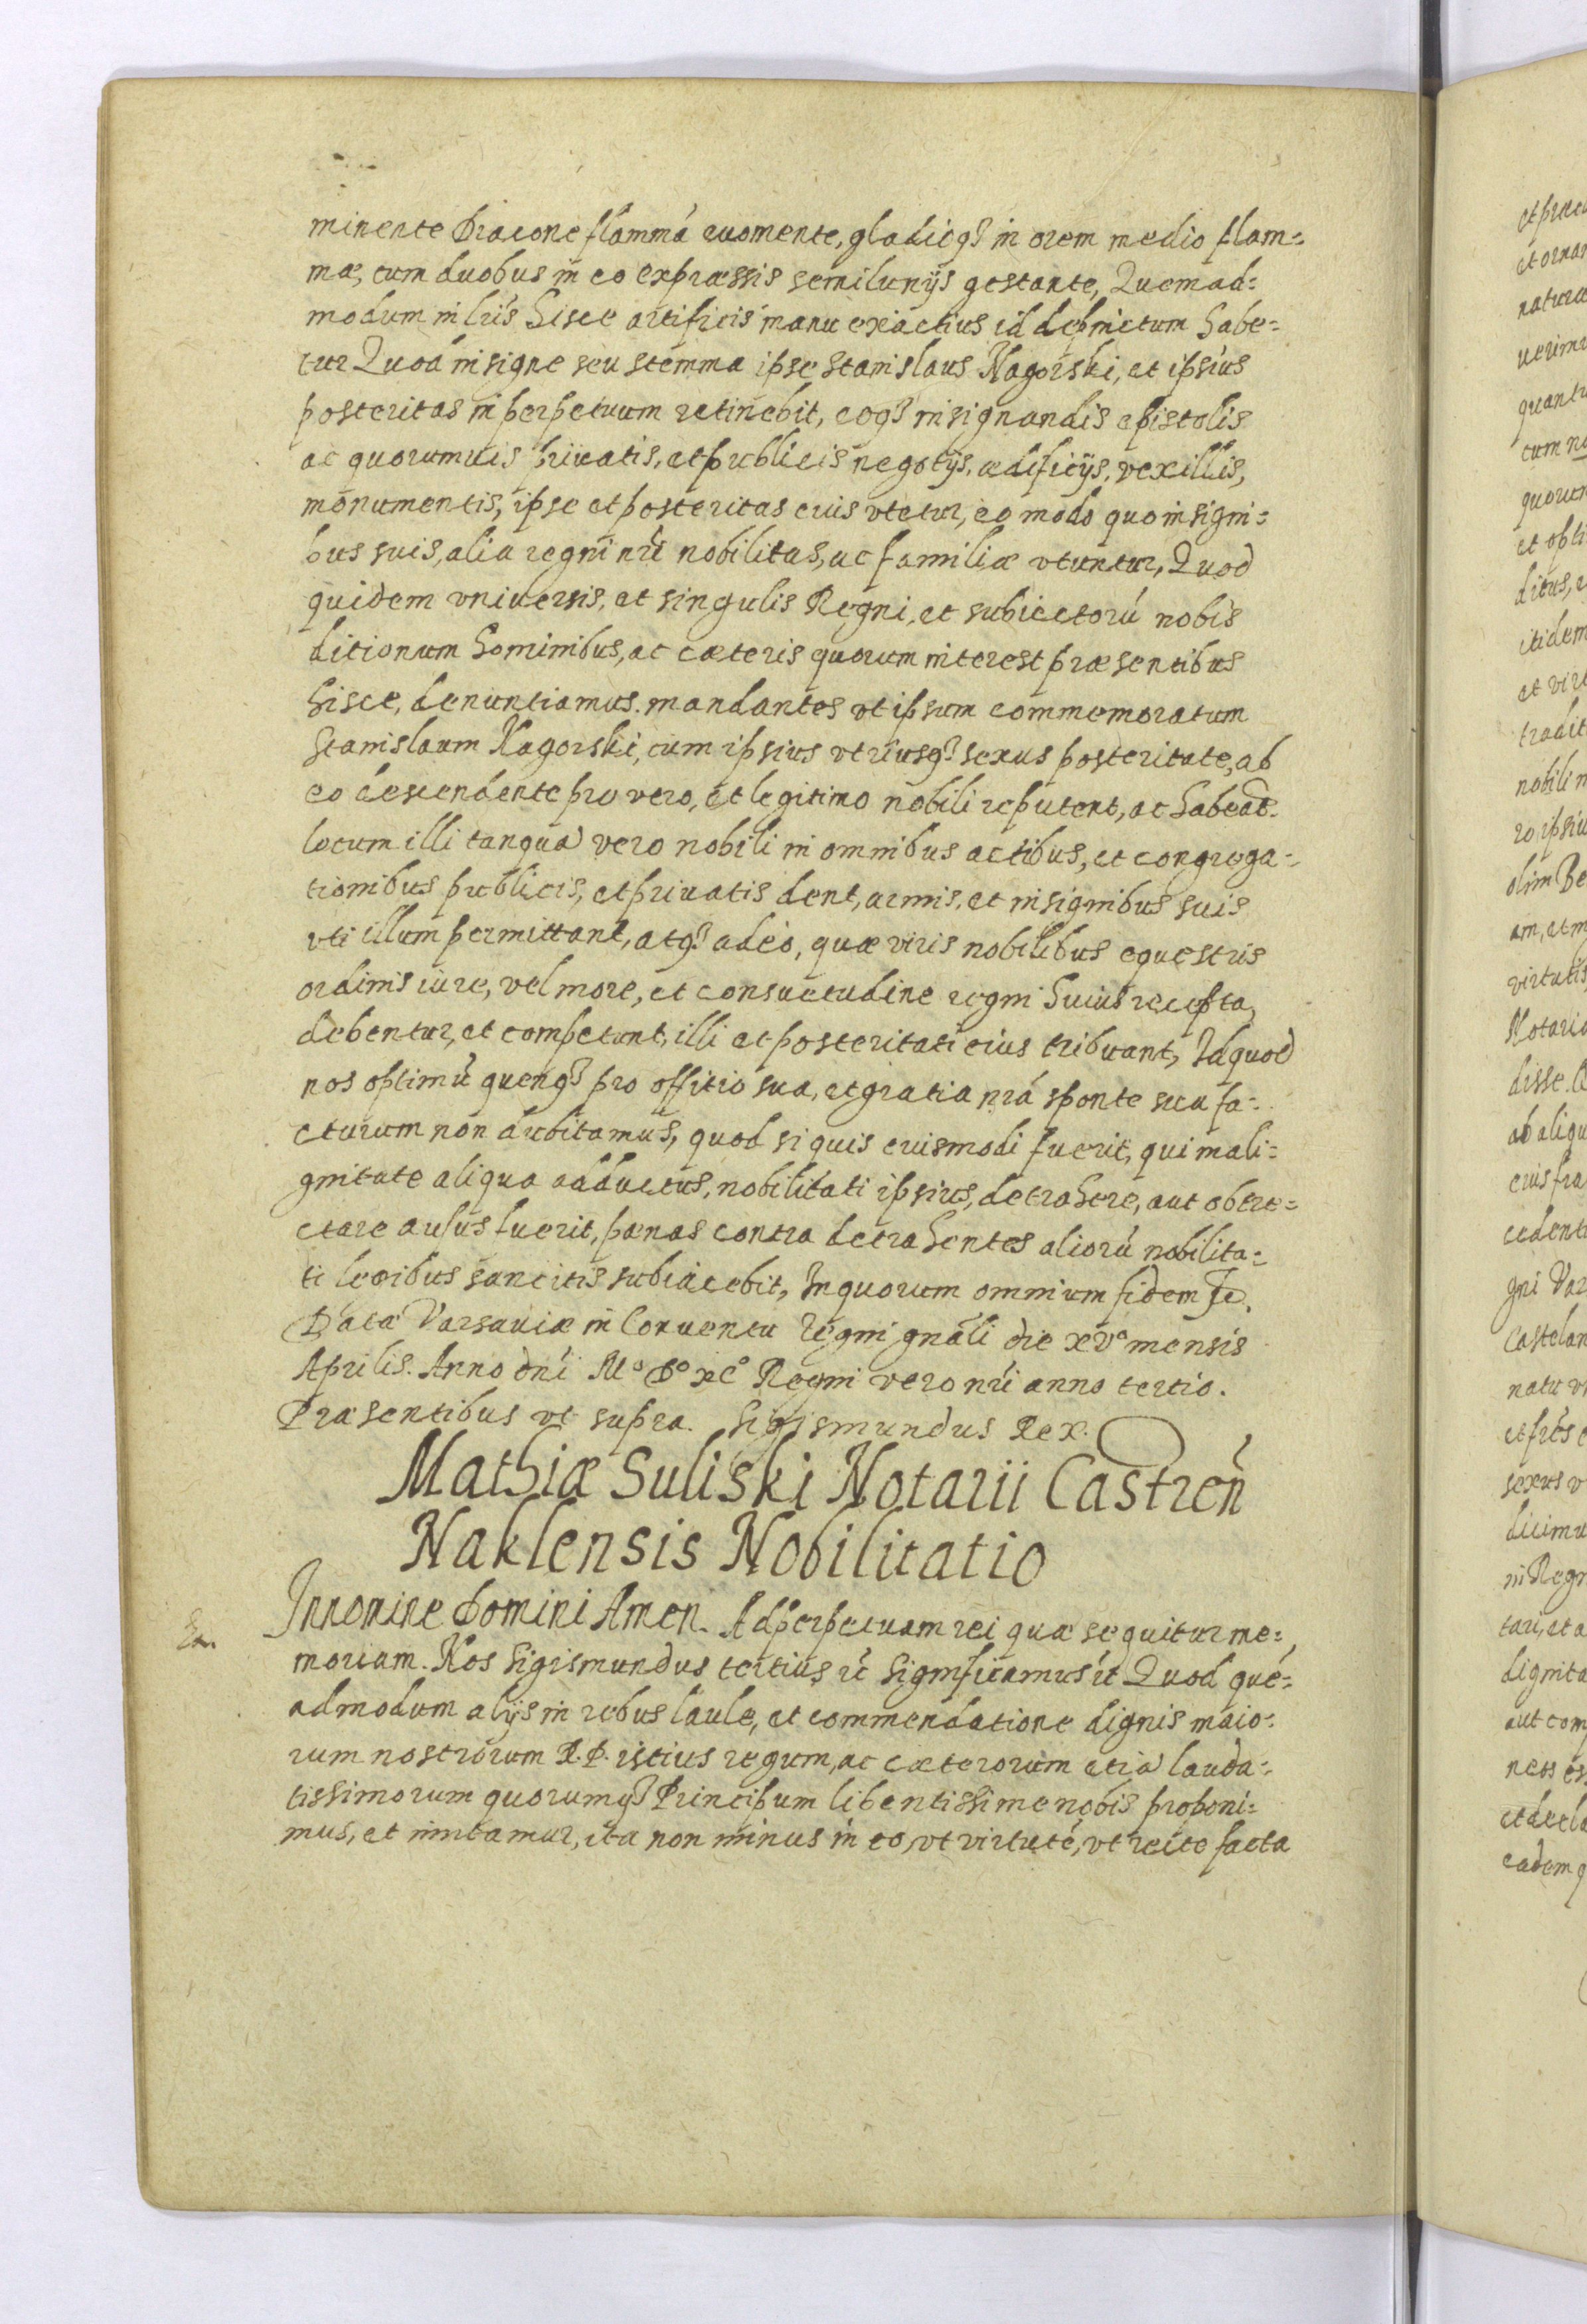 minente Dracone flammá euomente, gladioq₃ in orem medio flam-
mæ, cum duobus in eo expræssis semilunijs gestante, Quemad-
modum in lris hisce artificis manu exactius id depinctum habe-
tur Quod insigne seu stemma ipse Stanislaus Nagorski, et ipsius
posteritas in perpetuum retinebit, eoq₃ in signandis epistolis
ac quorumuis priuatis, et publicis negotijs, ædificijs, vexillis,
monumentis, ipse et posteritas eius vtetur, eo modo quo insigni-
bus suis, alia regni nri nobilitas, ac familiæ vtuntur, Quod
quidem vniuersis, et singulis Regni, et subiectorú nobis
ditionum hominibus, ac cæteris quorum interest præsentibus
hisce, denuntiamus. mandantes vt ipsum commemoratum
Stanislaum Nagorski, cum ipsius vtriusq₃ sexus posteritate, ab
eo descendente pro vero, et legitimo nobili reputent, ac habeãt
locum illi tanquã vero nobili in omnibus actibus, et congrega-
tionibus publicis, et priuatis dent, armis, et insignibus suis
vti illum permittant, atq₃ adeo, quæ viris nobilibus equestris
ordinis iure, vel more, et consuetudine regni huius recepta,
debentur, et competunt, illi et posteritati eius tribuant, Id quod
nos optimú quenq₃ pro offitio sua, et gratia nrá sponte sua fa-
cturum non dubitamus, quod si quis eiusmodi fuerit, qui mali-
gnitate aliqua adductus, nobilitati ipsius, detrahere, aut obtre-
ctare ausus fuerit, pænas contra detrahentes aliorú nobilita-
ti legibus sancitis subiacebit, In quorum omnium fidem &c.
Data Varsauiæ in Conuentu Regni gnáli die xvª mensis
Aprilis. Anno dni Mº Dº xCº Regni vero nri anno tertio.
Præsentibus vt supra. Sigismundus Rex.
Mathiæ Suliski Notarii Castreń
Naklensis Nobilitatio
In nomine Domini Amen. Ad perpetuam rei quæ sequitur me-
moriam. Nos Sigismundus tertius &c Significamus &c Quod qué-
admodum alijs in rebus laude, et commendatione dignis maio-
rum nostrorum R. P. istius regum, ac cæterorum etiã lauda-
tissimorum quorumq₃ Principum libentissime nobis proponi-
mus, et imitamur, ita non minus in eo, vt virtuté, vt recte facta